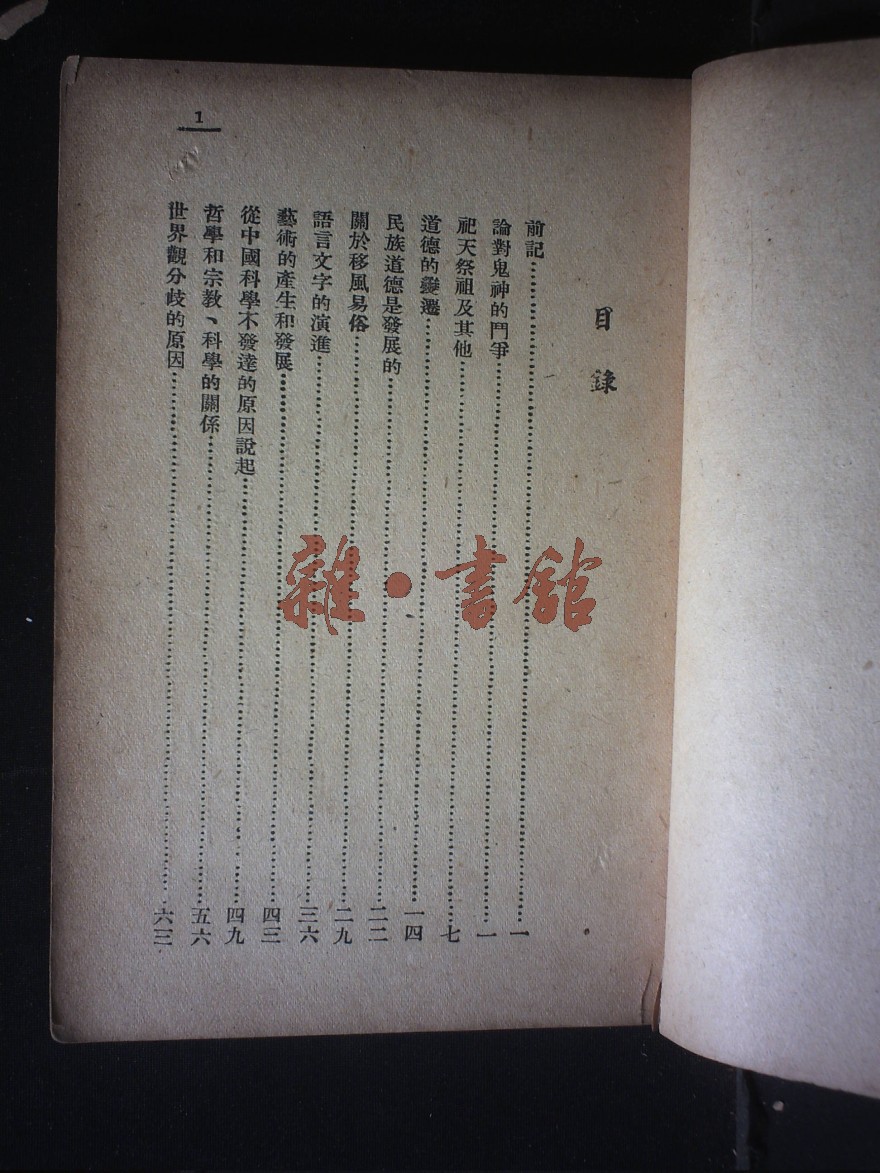 1
目錄
前記……一
論對鬼神的鬥爭……一
祀天祭祖及其他……七
道德的變遷……一四
民族道德是發展的……二二
關於移風易俗……二九
語言文字的演進……三六
藝術的產生和發展……四三
從中國科學不發達的原因說起……四九
哲學和宗教、科學的關係……五六
世界觀分歧的原因……六三
雜·書館